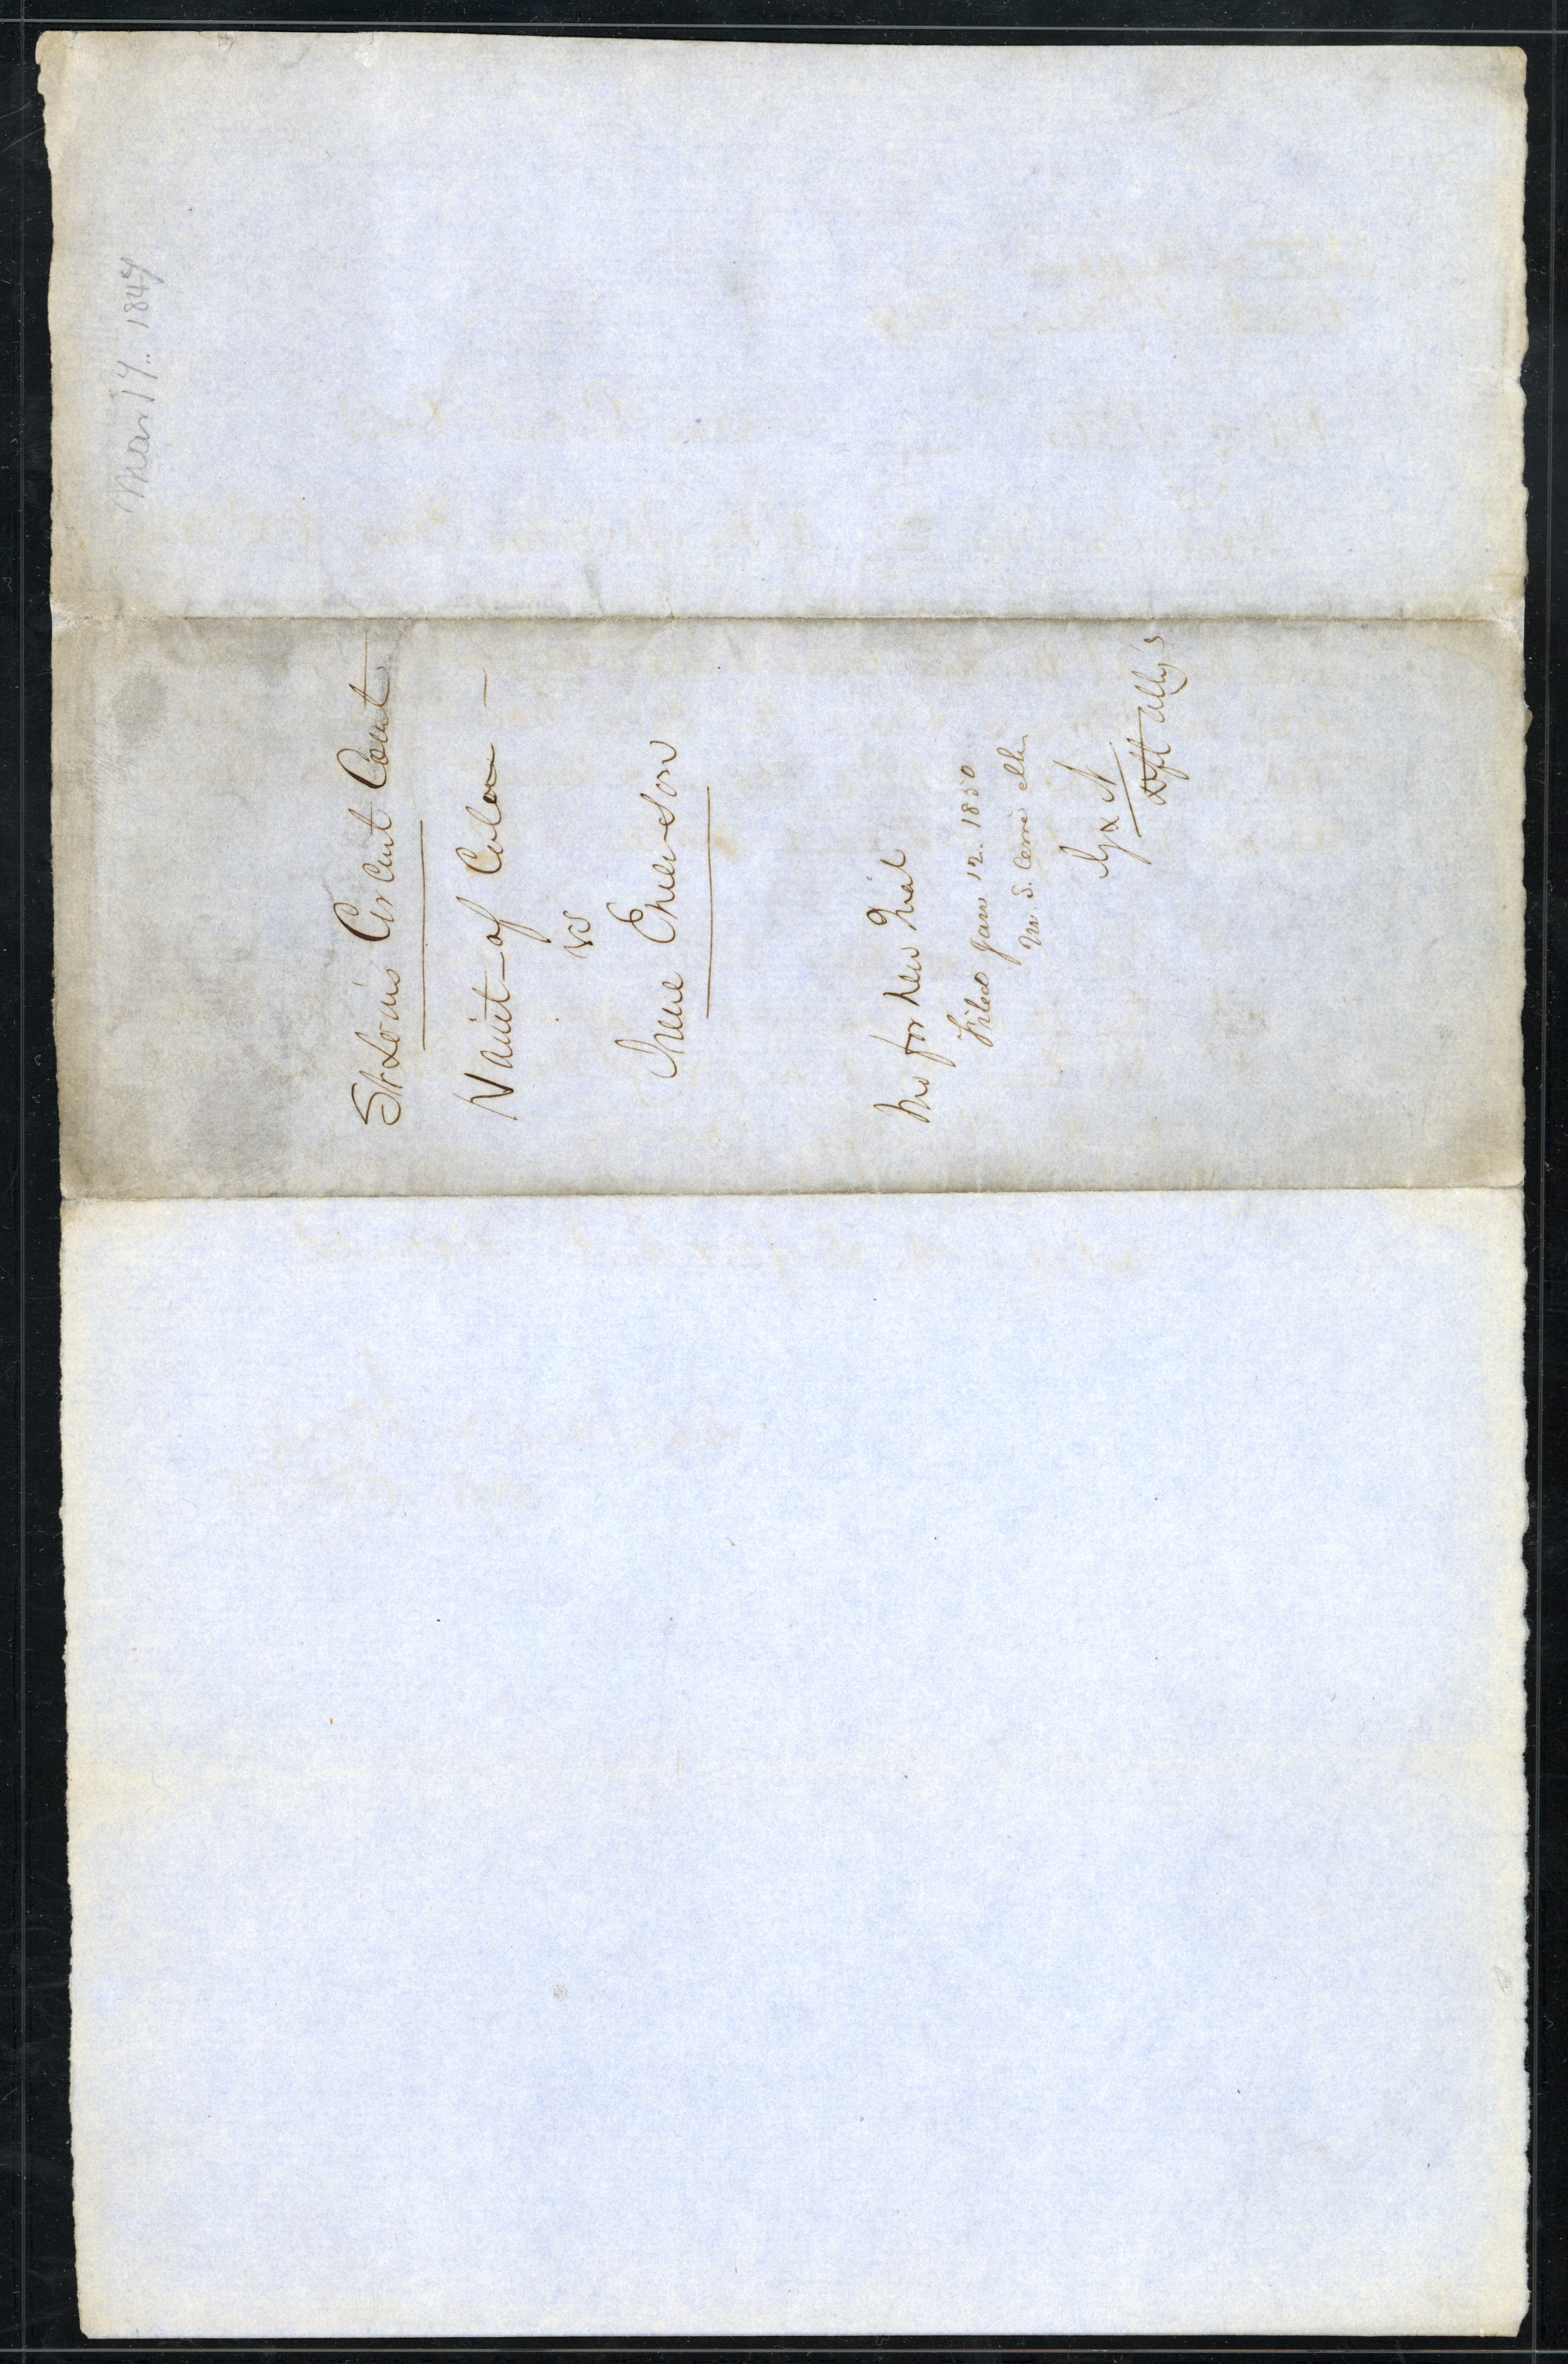 Mar 17.. 1847
St Louis Circuit Court
Harriet of Color
vs
Irene Emerson
Mo for New Trial
Filed Jany 12. 1850
M. S. Cerré Clk
G & N
Dft Atty's